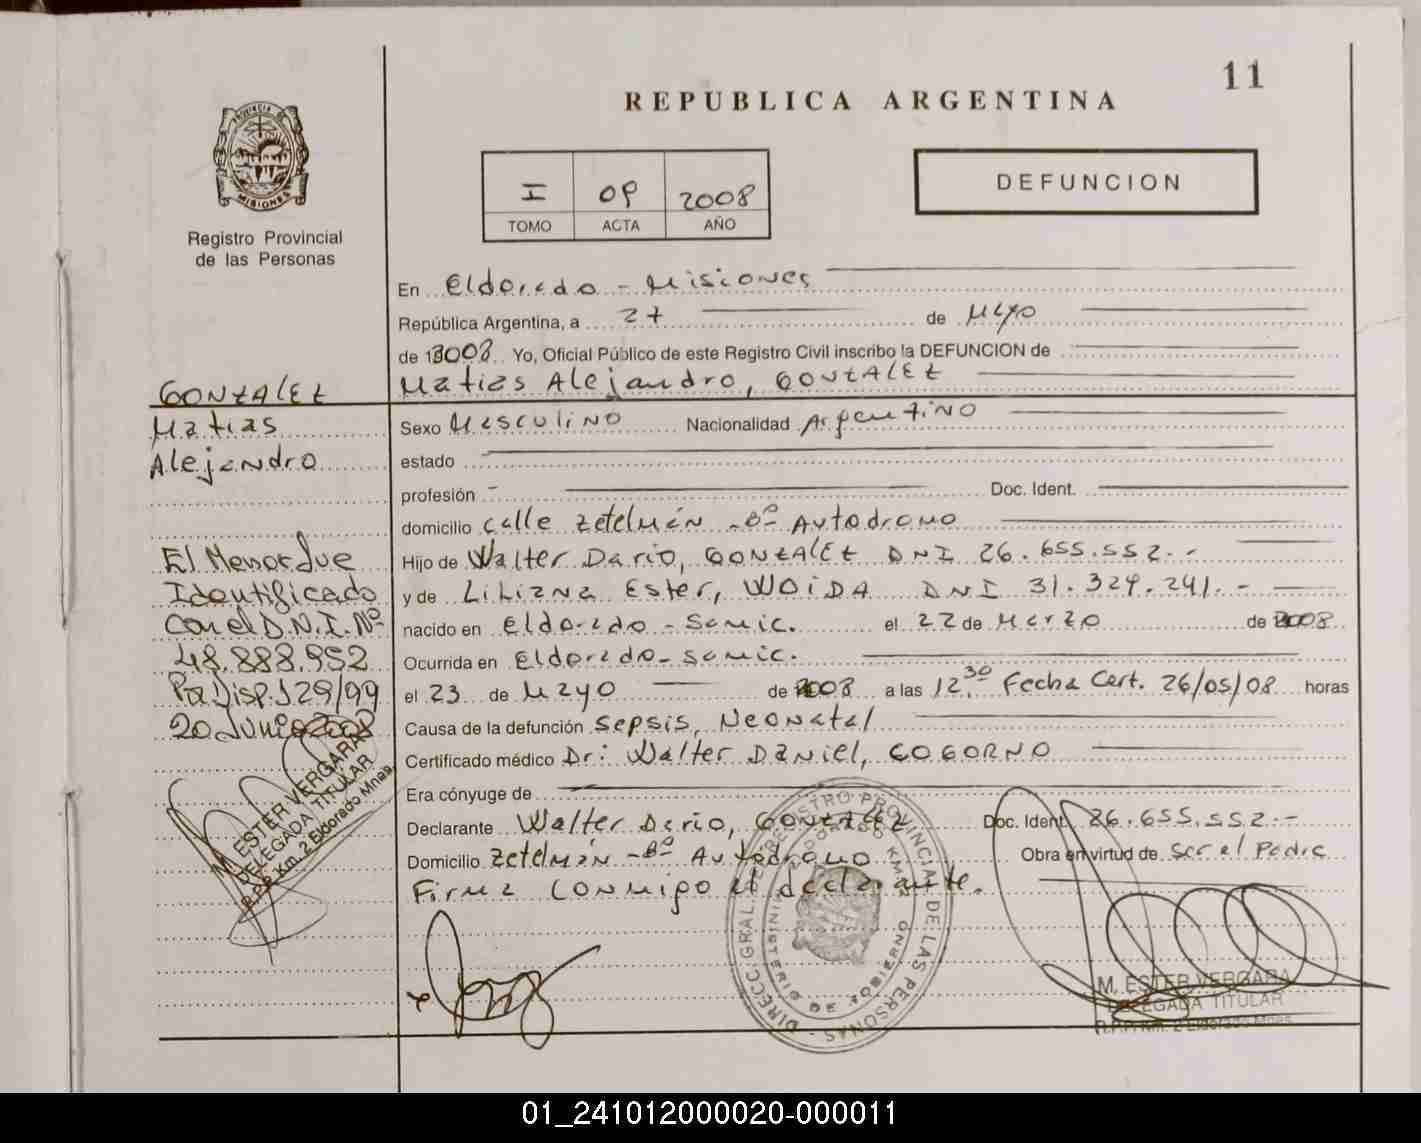 11
REPUBLICA ARGENTINA
PROVINCIA DE
MISIONES
Registro Provincial
de las Personas
I 09 2008
TOMO ACTA AÑO
DEFUNCION
En Eldorado - Misiones
República Argentina, a 27 de Mayo
de 2008 Yo, Oficial Público de este Registro Civil inscribo la DEFUNCION de
Matias Alejandro, GONZALEZ
GONZALEZ
Matias
Alejandro
Sexo Masculino Nacionalidad Argentino
estado
profesión - Doc. Ident.
domicilio calle Zetelmán - Bº Autodromo
Hijo de Walter Dario, GONZALEZ DNI 26.655.552.-
y de Liliana Ester, WOIDA DNI 31.329.241.-
nacido en Eldorado - Samic. el 22 de Marzo de 2008
Ocurrida en Eldorado - Samic.
el 23 de Mayo de 2008 a las 12,30 Fecha Cert. 26/05/08 horas
Causa de la defunción Sepsis, Neonatal
Certificado médico Dr: Walter Daniel, COGORNO
Era cónyuge de
Declarante Walter Dario, GONZALEZ Doc. Ident. 26.655.552.-
Domicilio Zetelmán - Bº Autodromo Obra en virtud de ser el Padre
Firma conmigo el declarante.
El Menor fue
Identificado
Con el D.N.I. Nº
48.888.952
Por Disp. 129/99
20 Junio 2008
M. ESTER VERGARA
DELEGADA TITULAR
R.P.P. Km. 2 Eldorado Mnes.
DIRECC. GRAL. REGISTRO PROVINCIAL DE LAS PERSONAS -
MINISTERIO DE GOBIERNO
ELDORADO KM 2
M. ESTER VERGARA
DELEGADA TITULAR
R.P.P. Km. 2 Eldorado Mnes.
01_241012000020-000011